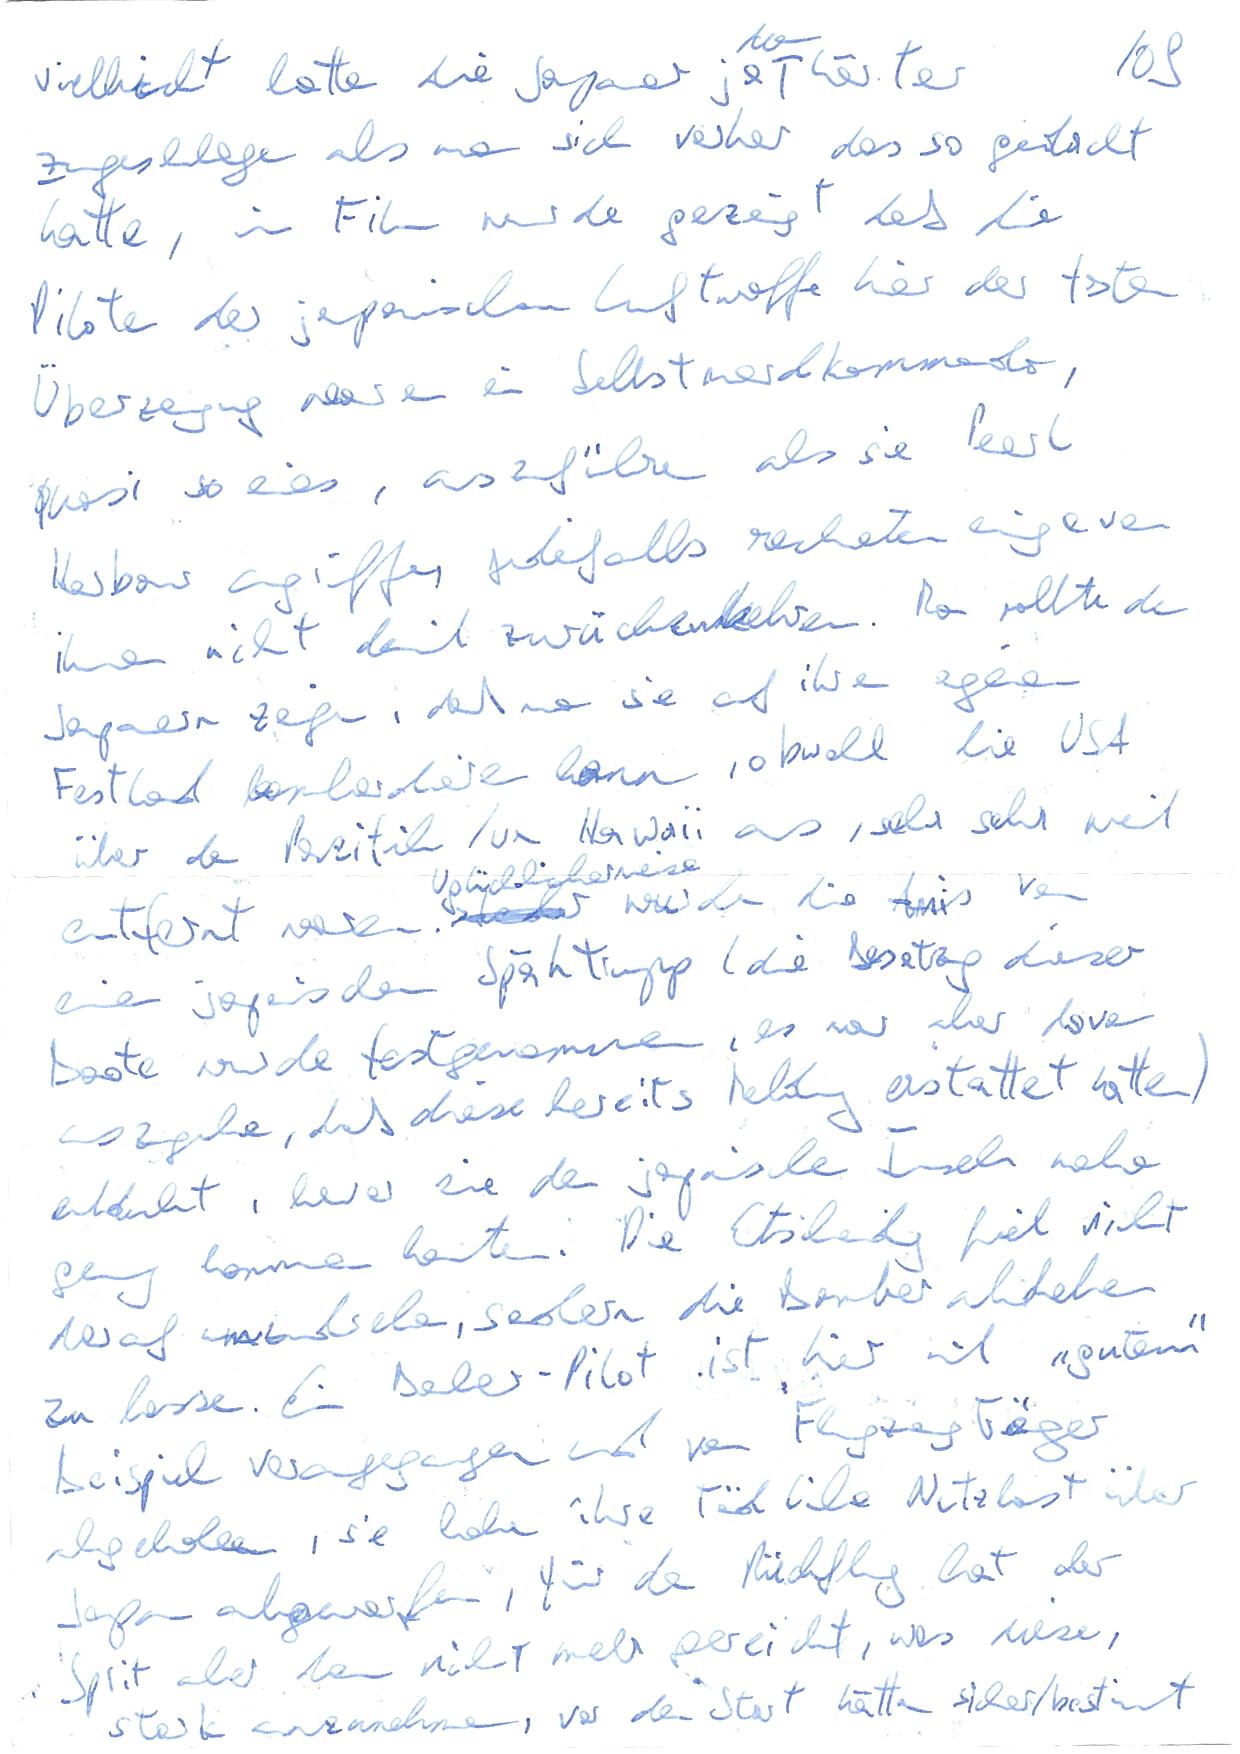 109
vielleicht hatte die Japaner ja da härter
zugeschlage als man sich vorher das so gedacht
hatte, im Film wurde gezeigt daß die
Pilote der japanischen Luftwaffe hier der festen
Überzeugung waren ein Selbstmordkommando,
quasi so eins, auszuführen als sie Pearl
Harbour angriffen, jedenfalls rechneten einige von
ihnen nicht damit zurückzukehren. Man wollte den
Japanern zeigen, daß man sie auf ihren eigenen
Festland bombardieren kann, obwohl die USA
über den Pazifik / von Hawaii aus, sehr sehr weit
entfernt waren. Unglücklicherweise wurden die Amis von
einen japanischen Spähtrupp (die Besatzung dieser
Boote wurde festgenommen, es war aber davon
auszugehen, daß diese bereits Meldung erstattet hatten)
entdeckt, bevor sie den japanische Inseln nahe
genug kommen konnten. Die Entscheidung fiel nicht
darauf umzudrehen, sondern die Bomber abheben
zu lassen. Ein Bomber-Pilot ist hier mit "gutem"
Beispiel vorangegangen und vom Flugzeugträger
abgehoben, sie haben ihre tödliche Nutzlast über
Japan abgeworfen, für den Rückflug hat der
Sprit aber dann nicht mehr gereicht, was diese,
stark anzunehmen, vor dem Start hätten sicher/bestimmt